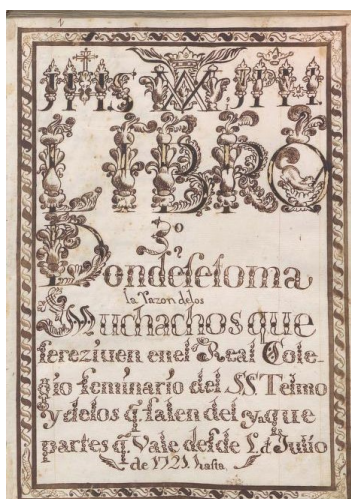 JHS M JPH
LIBRO
3º
Dondesetoma
la razon delos
Muchachos que
sereziuen enel Real Cole-
gio seminario del SS. Telmo
y delos q. salen del ya que
partes q. Vale desde 1. d Julio
de 1721 hasta